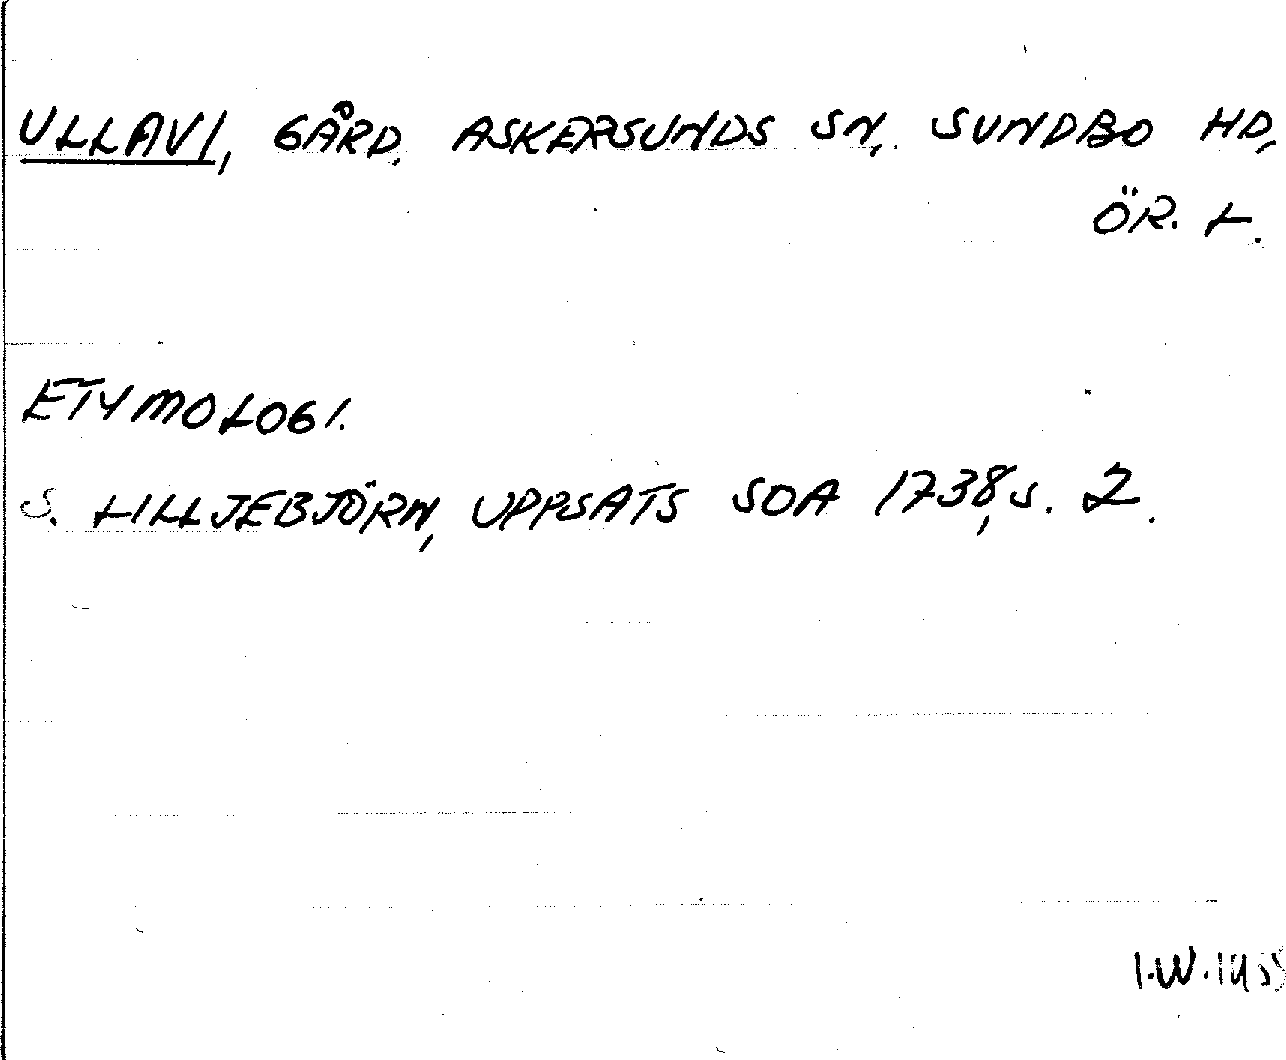 ULLAVI, GÅRD, ASKERSUNDS SN, SUNDBO HD,
ÖR. L.
ETYMOLOGI.
S. LILLJEBJÖRN, UPPSATS SOA 1738, S. 2.
I.W. 1955